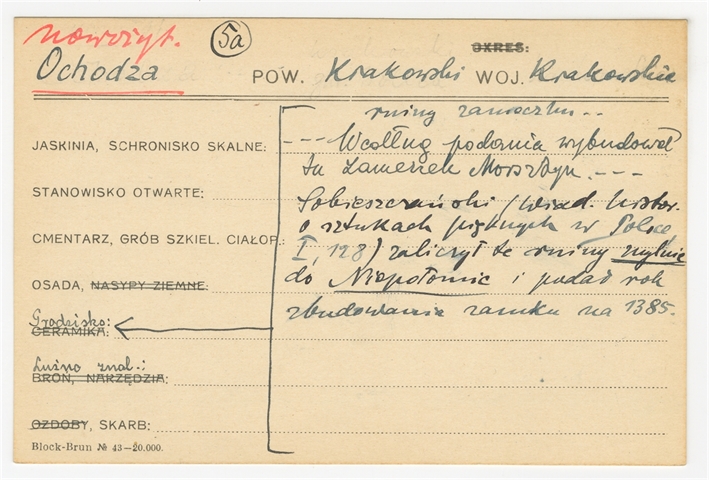 nowożyt. 5a OKRES:
Ochodza POW. Krakowski WOJ. Krakowskie
ruiny zameczku . .
JASKINIA, SCHRONISKO SKALNE: --- Według podania wybudował
tu zameczek Morsztyn. ---
STANOWISKO OTWARTE: Sobieszczański (Wiad. histor.
o sztukach pięknych w Polsce
CMENTARZ, GRÓB SZKIEL. CIAŁOP.: I, 128) zaliczył te ruiny mylnie
OSADA, NASYPY ZIEMNE: do Niepołomic i podał rok
Grodzisko: zbudowania zamku na 1385.
CERAMIKA:
Luźno znal.:
BROŃ, NARZĘDZIA:
OZDOBY, SKARB:
Block-Brun № 43—20.000.